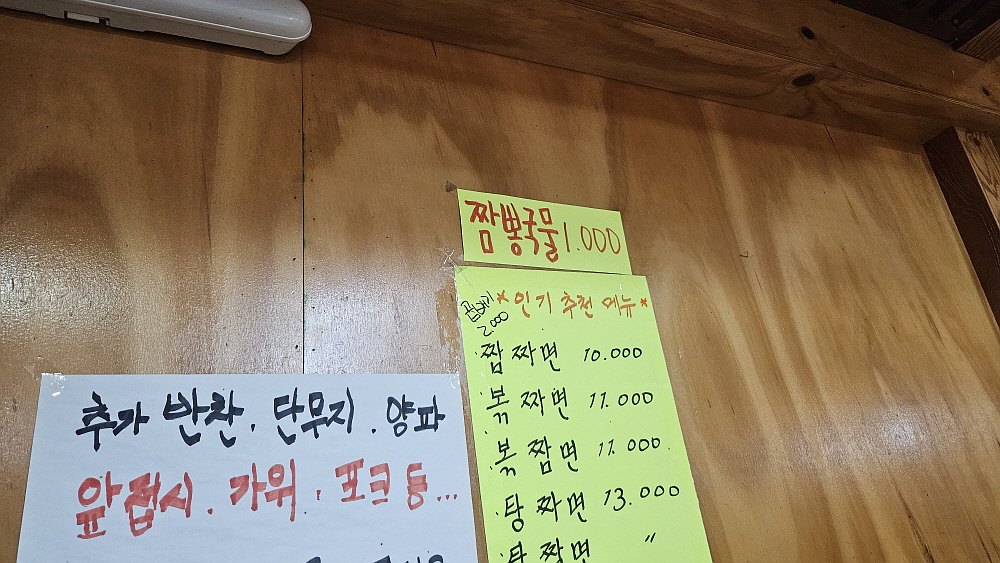 짬뽕국물 1.000
곱빼기
2.000
* 인기 추천 메뉴 *
짬짜면 10.000
볶짜면 11.000
볶짬면 11.000
탕짜면 13.000
탕짬면 "
추가 반찬. 단무지. 양파
앞접시. 가위. 포크 등...